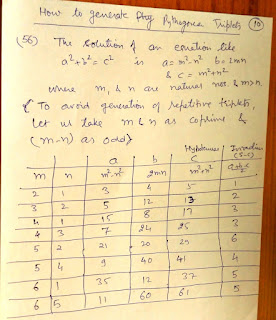 How to generate Pythagorean Triplets (10)
(56) The solution of an equation like
a²+b²=c² is a=m²-n² b=2mn
& c=m²+n²
where m, & n are natural nos. & m>n.
{To avoid generation of repetitive triplets,
Let us take m & n as coprime &
(m-n) as odd}
Hypotenuse Inradius
a b c (S-C)
m n m²-n² 2mn m²+n² a+b-c/2
2 1 3 4 5 1
3 2 5 12 13 2
4 1 15 8 17 3
4 3 7 24 25 3
5 2 21 20 29 6
5 4 9 40 41 4
6 1 35 12 37 5
6 5 11 60 61 5